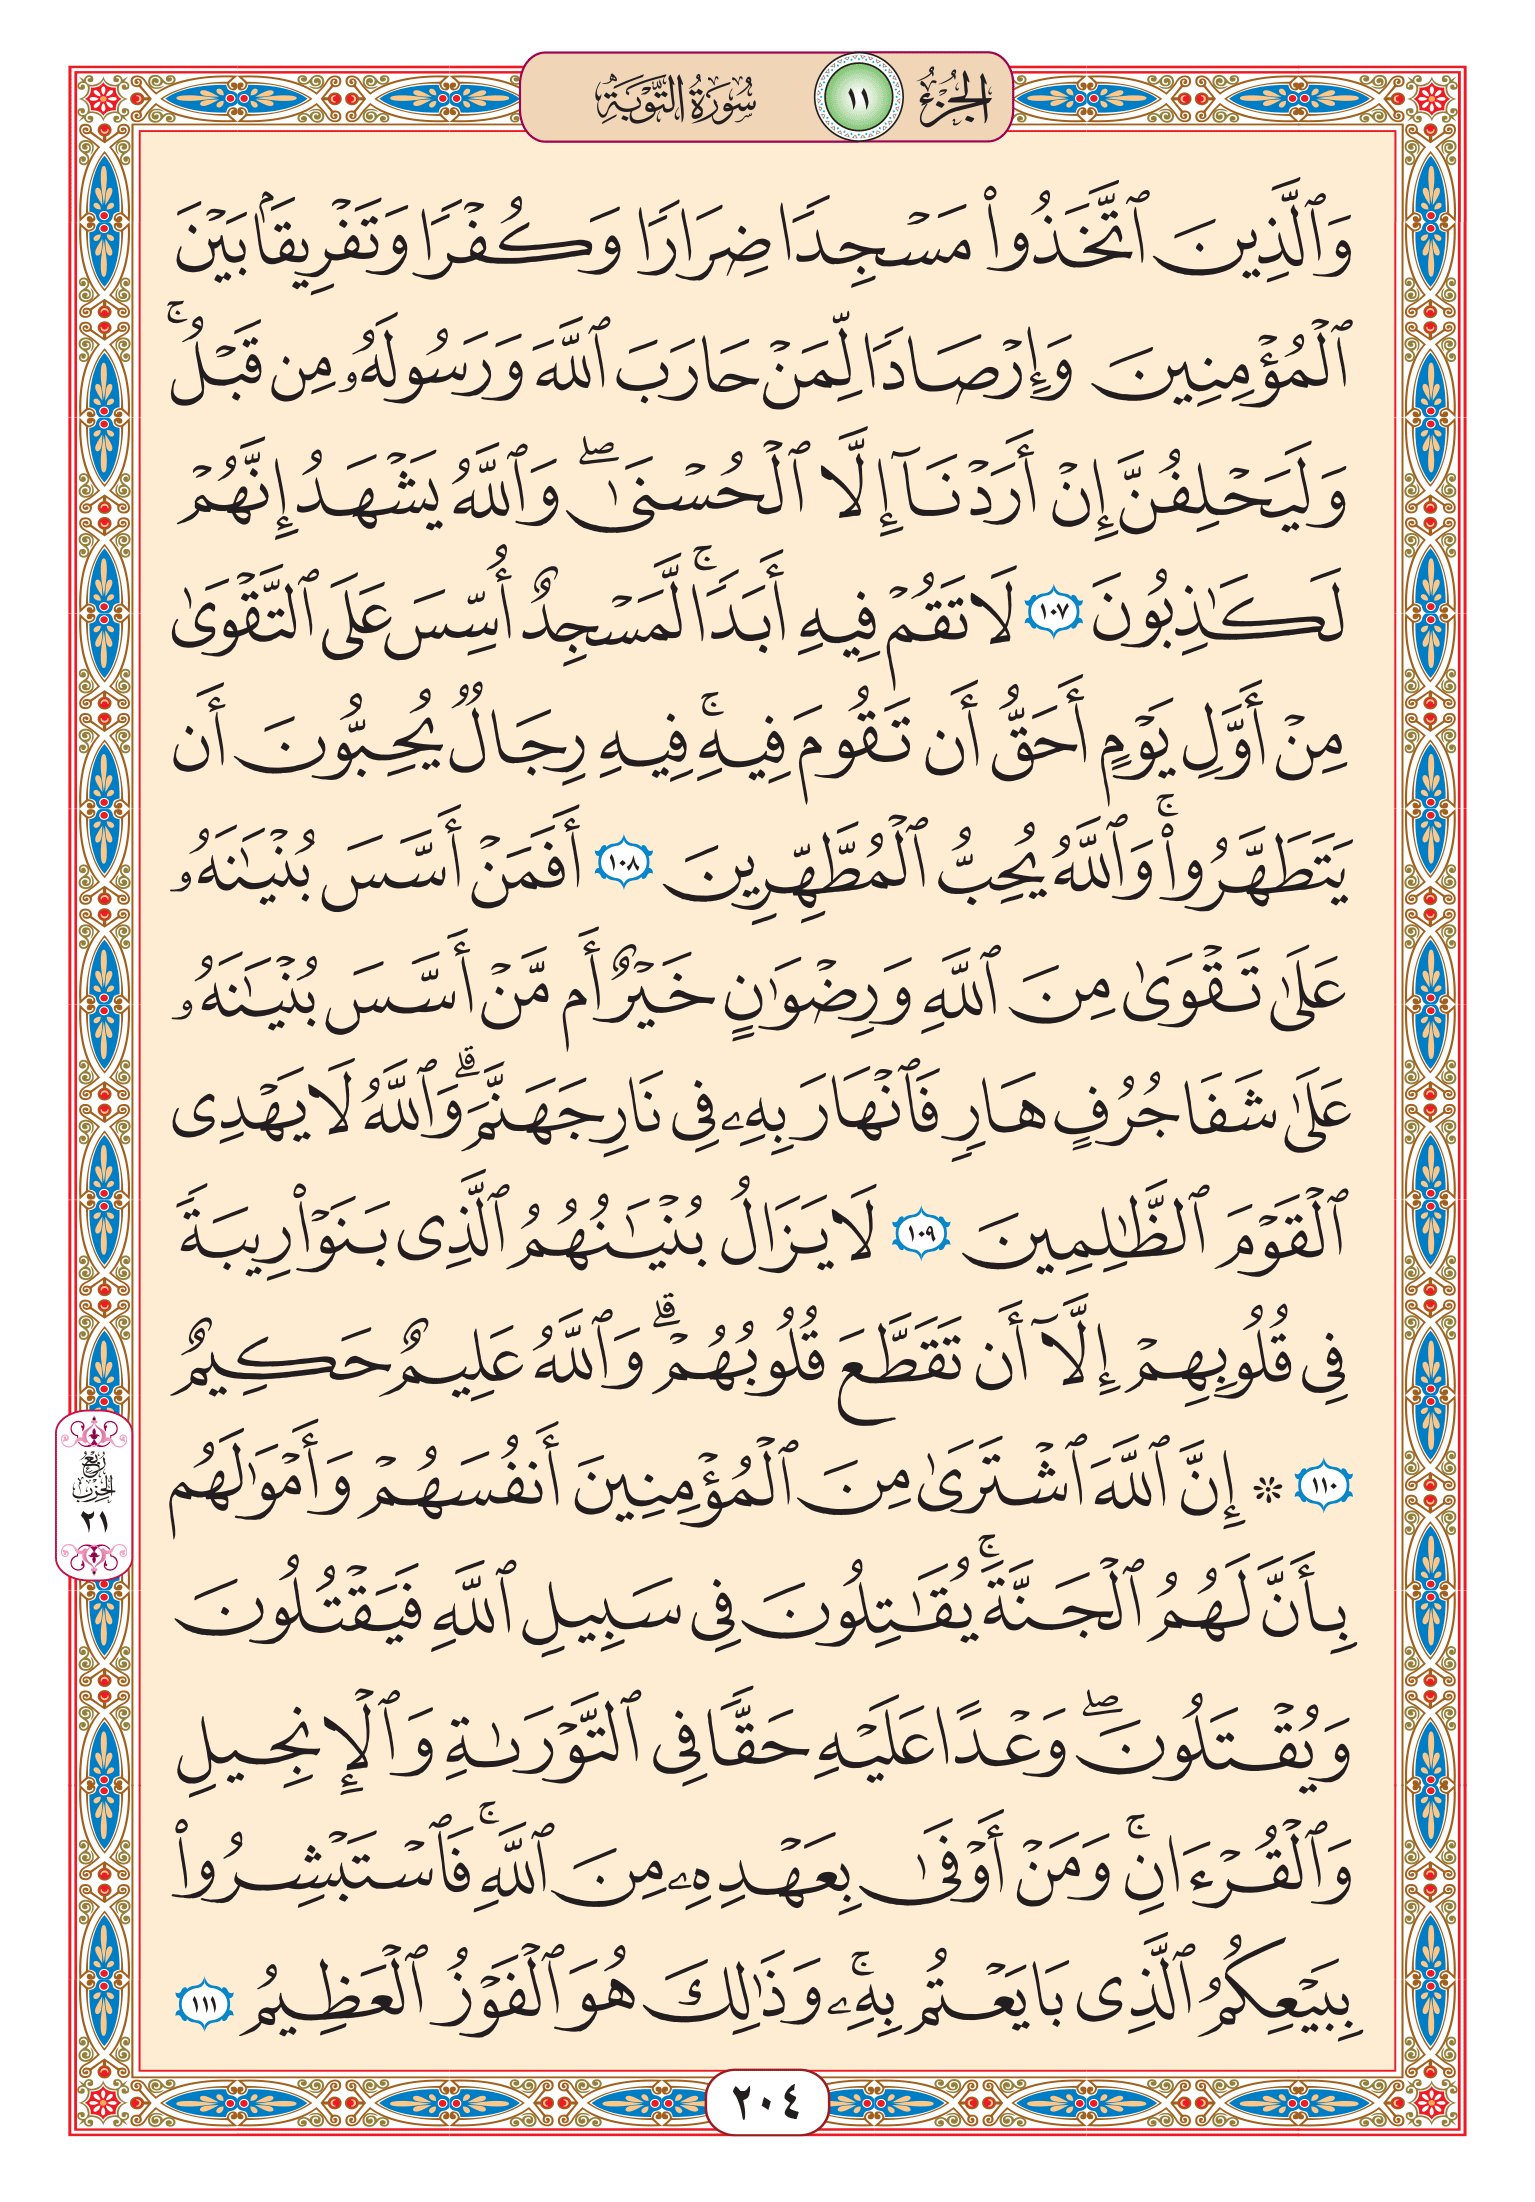 الجزء ١١ سورة التوبة
وَٱلَّذِينَ ٱتَّخَذُوا۟ مَسْجِدًا ضِرَارًا وَكُفْرًا وَتَفْرِيقًۢا بَيْنَ
ٱلْمُؤْمِنِينَ وَإِرْصَادًا لِّمَنْ حَارَبَ ٱللَّهَ وَرَسُولَهُۥ مِن قَبْلُ ۚ
وَلَيَحْلِفُنَّ إِنْ أَرَدْنَآ إِلَّا ٱلْحُسْنَىٰ ۖ وَٱللَّهُ يَشْهَدُ إِنَّهُمْ
لَكَـٰذِبُونَ ١٠٧ لَا تَقُمْ فِيهِ أَبَدًا ۚ لَّمَسْجِدٌ أُسِّسَ عَلَى ٱلتَّقْوَىٰ
مِنْ أَوَّلِ يَوْمٍ أَحَقُّ أَن تَقُومَ فِيهِ ۚ فِيهِ رِجَالٌ يُحِبُّونَ أَن
يَتَطَهَّرُوا۟ ۚ وَٱللَّهُ يُحِبُّ ٱلْمُطَّهِّرِينَ ١٠٨ أَفَمَنْ أَسَّسَ بُنْيَـٰنَهُۥ
عَلَىٰ تَقْوَىٰ مِنَ ٱللَّهِ وَرِضْوَٰنٍ خَيْرٌ أَم مَّنْ أَسَّسَ بُنْيَـٰنَهُۥ
عَلَىٰ شَفَا جُرُفٍ هَارٍ فَٱنْهَارَ بِهِۦ فِى نَارِ جَهَنَّمَ ۗ وَٱللَّهُ لَا يَهْدِى
ٱلْقَوْمَ ٱلظَّـٰلِمِينَ ١٠٩ لَا يَزَالُ بُنْيَـٰنُهُمُ ٱلَّذِى بَنَوْا۟ رِيبَةً
فِى قُلُوبِهِمْ إِلَّآ أَن تَقَطَّعَ قُلُوبُهُمْ ۗ وَٱللَّهُ عَلِيمٌ حَكِيمٌ
١١٠ ۞ إِنَّ ٱللَّهَ ٱشْتَرَىٰ مِنَ ٱلْمُؤْمِنِينَ أَنفُسَهُمْ وَأَمْوَٰلَهُم
بِأَنَّ لَهُمُ ٱلْجَنَّةَ ۚ يُقَـٰتِلُونَ فِى سَبِيلِ ٱللَّهِ فَيَقْتُلُونَ
وَيُقْتَلُونَ ۖ وَعْدًا عَلَيْهِ حَقًّا فِى ٱلتَّوْرَىٰةِ وَٱلْإِنجِيلِ
وَٱلْقُرْءَانِ ۚ وَمَنْ أَوْفَىٰ بِعَهْدِهِۦ مِنَ ٱللَّهِ ۚ فَٱسْتَبْشِرُوا۟
بِبَيْعِكُمُ ٱلَّذِى بَايَعْتُم بِهِۦ ۚ وَذَٰلِكَ هُوَ ٱلْفَوْزُ ٱلْعَظِيمُ ١١١
ربع
الحزب
٢١
٢٠٤